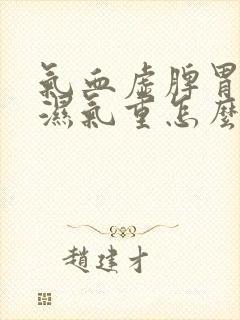 氣血虛脾胃
濕氣重怎麼
趙建才